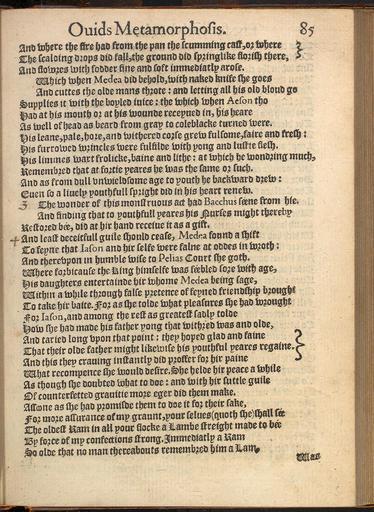 Ouids Metamorphosis. 85
And where the fire had from the pan the scumming cast, or where
The scalding drops did fall, the ground did springlike florish there,
And flowres with fodder fine and soft immediatly arose.
Which when Medea did behold, with naked knife she goes
And cuttes the olde mans throte: and letting all his old bloud go
Supplies it with the boyled iuice: the which when Aeson tho
Had at his mouth or at his wounde receyued in, his heare
As well of head as beard from gray to coleblacke turned were.
His leane, pale, hore, and withered corse grew fulsome, faire and fresh:
His furrowed wrincles were fulfilde with yong and lustie flesh.
His limmes wart frolicke, baine and lithe: at which he wondring much,
Remembred that at fortie yeares he was the same or such.
And as from dull vnwieldsome age to youth he backward drew:
Euen so a liuely youthfull spright did in his heart renew.
3 The wonder of this monstruous act had Bacchus seene from hie.
And finding that to youthfull yeares his Nurses might thereby
Restored bée, did at hir hand receiue it as a gift.
4 And least deceitfull guile should cease, Medea found a shift
To feyne that Iason and hir selfe were falne at oddes in wroth:
And therevpon in humble wise to Pelias Court she goth.
Where forbicause the King himselfe was féebled sore with age,
His daughters entertainde hir whome Medea being sage,
Within a while through false pretence of feyned friendship brought
To take hir baite. For as she tolde what pleasures she had wrought
For Iason, and among the rest as greatest sadly tolde
How she had made his father yong that withred was and olde,
And taried long vpon that point: they hoped glad and faine
That their olde father might likewise his youthful yeares regaine.
And this they crauing instantly did proffer for hir paine
What recompence she would desire. She helde hir peace a while
As though she doubted what to doe: and with hir suttle guile
Of counterfetted grauitie more eger did them make.
Assone as she had promisde them to doe it for their sake,
For more assurance of my graunt, your selues (quoth she) shall sée
The oldest Ram in all your flocke a Lambe streight made to bée
By force of my confections strong. Immediatly a Ram
So olde that no man thereabouts remembred him a Lam
Was